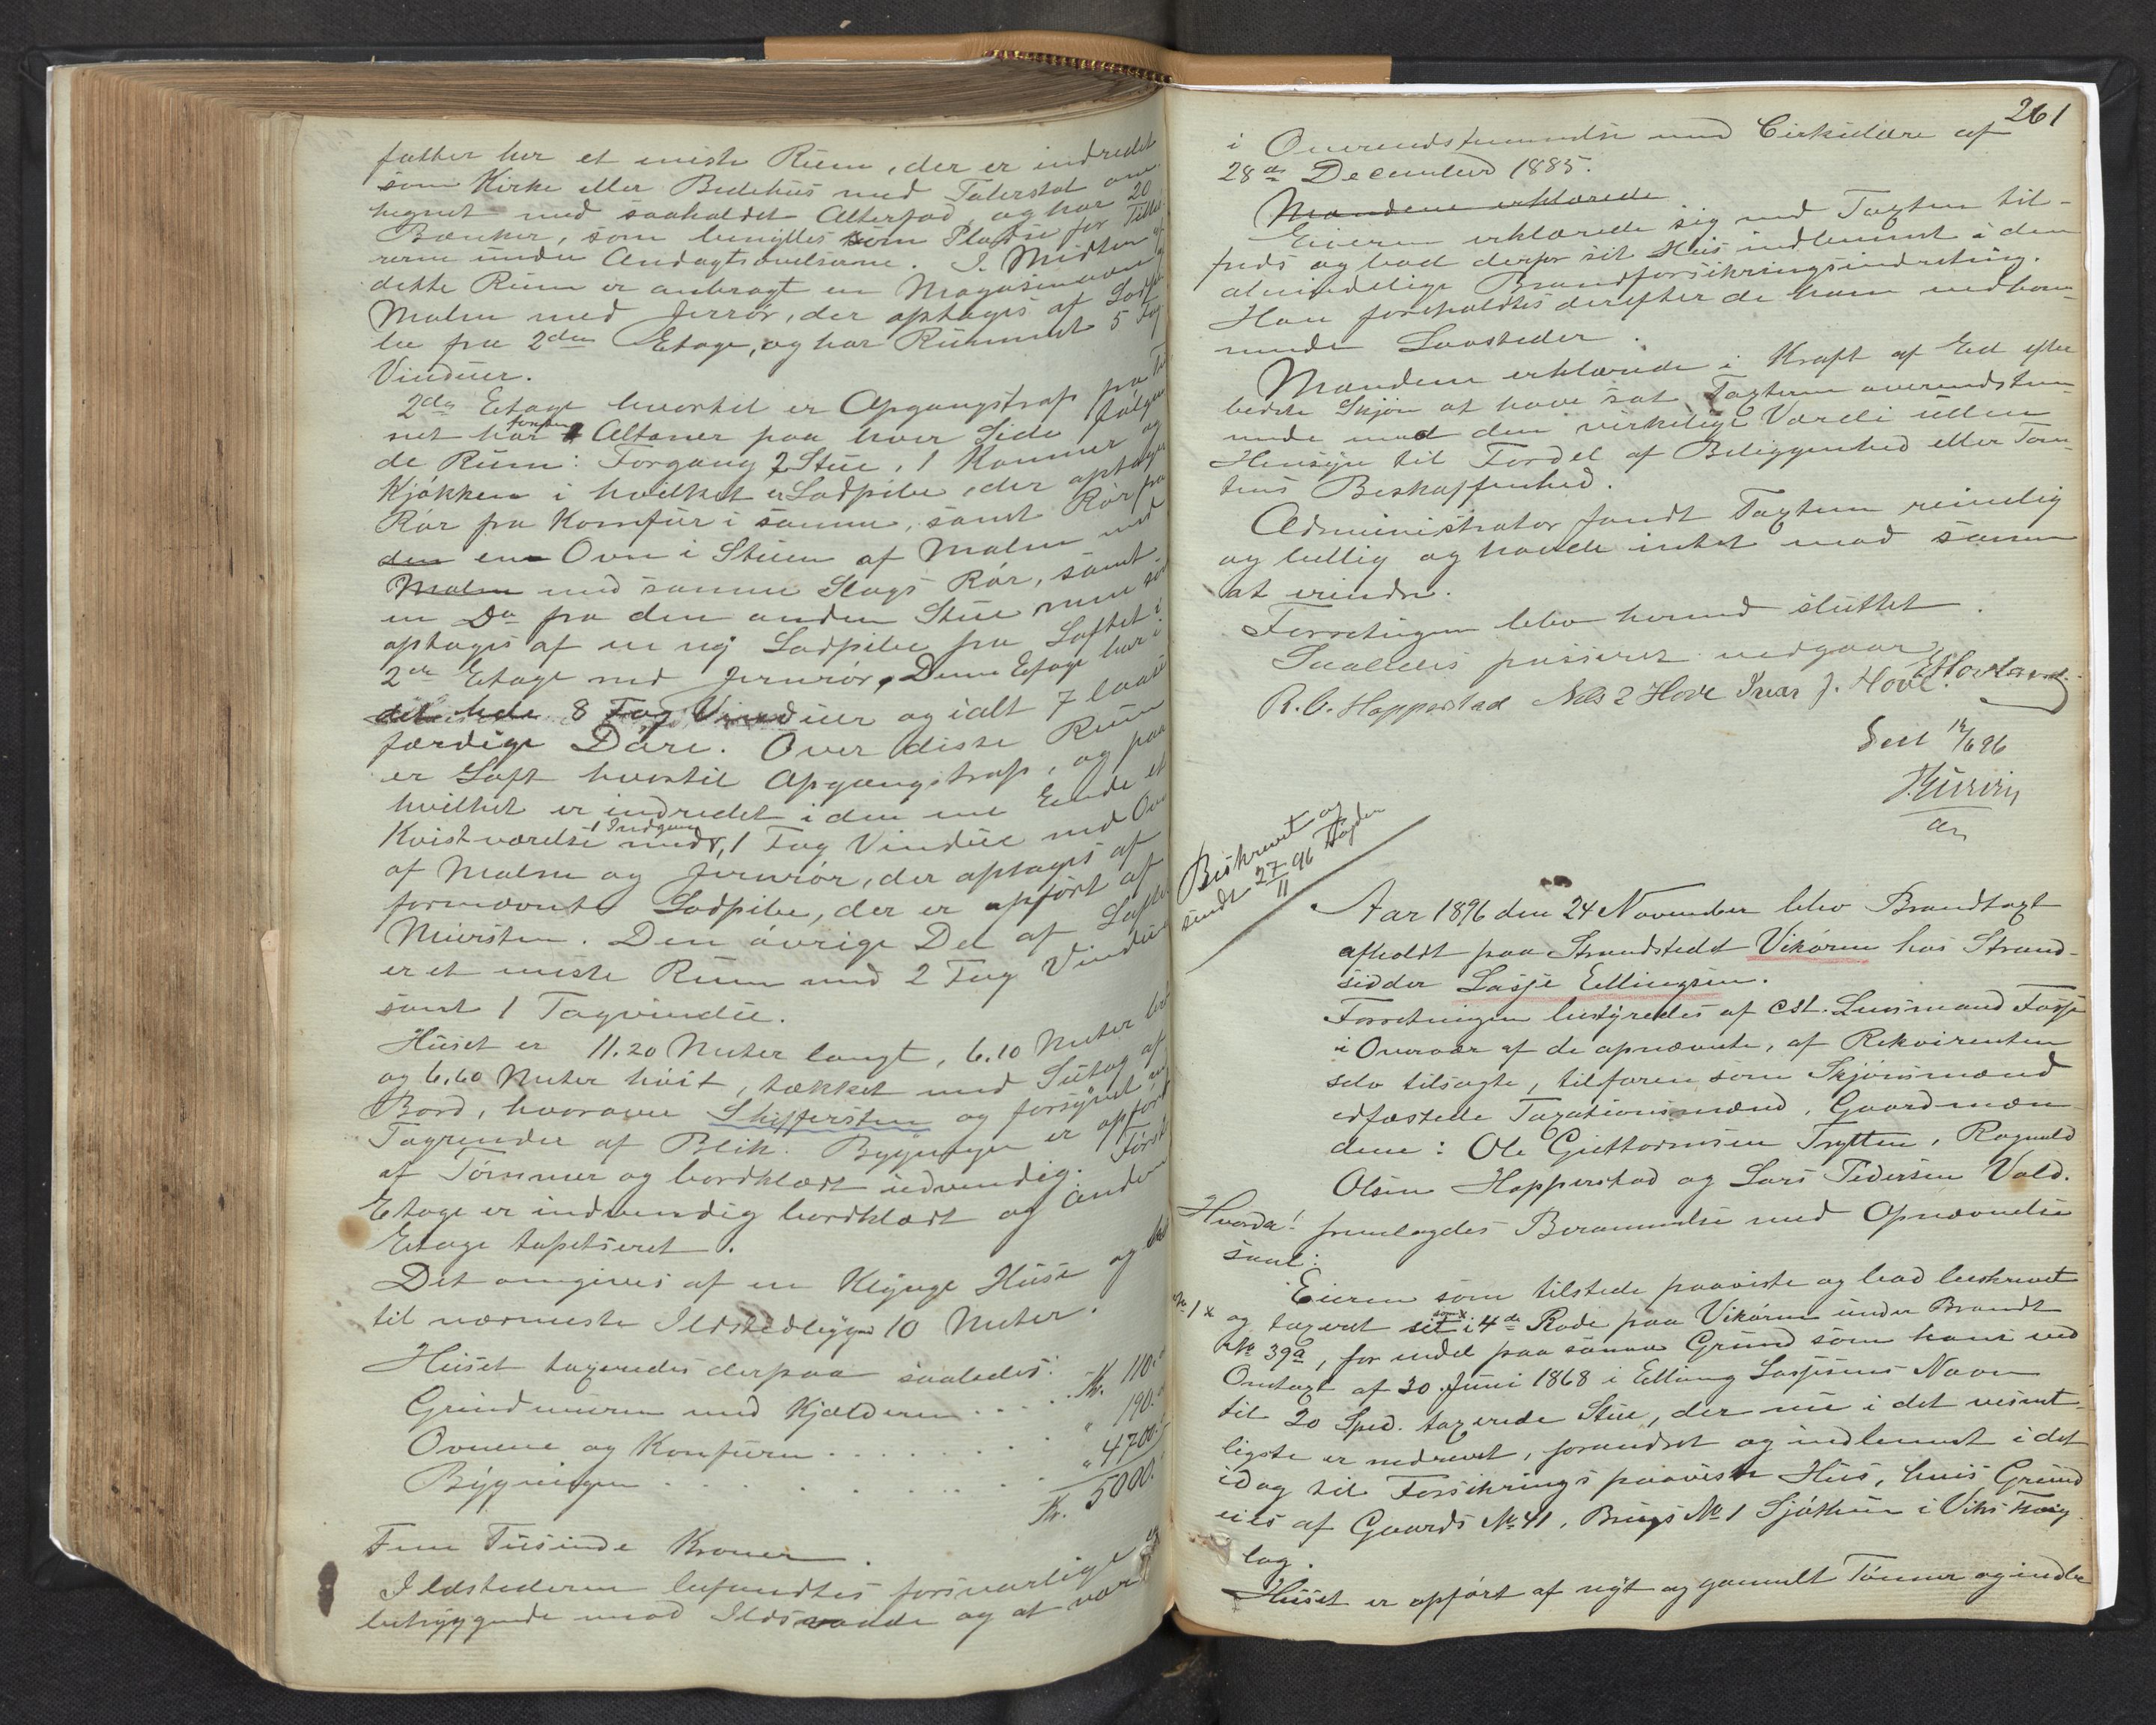 fatter her et eneste Rum, der er indredet
som Kirke eller Bedehus med Talerstol om
hegnet med saakaldet Alterfod, og har 20
Bænker, som benyttes som Pladse for Tilhø
rerne under Andagtsøvelserne. I Midten af
dette Rum er anbragt en Magasinovn af
Malm med Jernrør, der optages af Lodpi
be fra 2den Etage, og har Rummet 5 Fag
Vinduer.
2den Etage hvortil er Opgangstrap fra Tu
net har foruden Altaner paa hver Side følgen
de Rum: Forgang 2 Stue, 1 Kammer og
Kjøkken i hvilket er Lodpibe, der optager
Rør fra Komfur i samme, samt Rør fra
den en Ovn i Stuen af Malm med
Malm med samme Slags Rør, samt
en Do fra den anden Stue som
optages af en ny Lodpibe fra Loftet i
2en Etage med Jernrør, Denne Etage har i
det hele 8 Fag Vinduer og ialt 7 laas
færdige Døre. Over disse Rum
er Loft hvortil Opgangstrap, og paa
hvilket er indredet i den ene Ende et
Kvistværelse med 1 Indgang, 1 Fag Vindue med Ovn
af Malm og Jernrør, der optages af
fornævnte Lodpibe, der er opført af
Mursten. Den øvrige Del af Loftet
er et eneste Rum med 2 Fag Vinduer
samt 1 Tagvindue.
Huset er 11.20 Meter langt, 6.10 Meter bre
og 6.60 Meter høit, tækket med Sutag af
Bord, hvorover Skiffersten og forsynet med
Tagrender af Blik. Bygningen er opført
af Tømmer og bordklædt udvendig. Første
Etage er indvendig bordklædt og anden
Etage tapetseret.
Det omgives af en Klynge Huse og
til nærmeste Ildstedbygn 10 Meter.
Huset taxeredes derpaa saaledes:
Grundmuren med Kjælderen . . . . Kr. 110."
Ovnene og Komfuren . . . . . . " 190."
Bygningen . . . . . . . " 4700.
Kr. 5000.
Fem Tusinde Kroner.
Ildstederne befandtes forsvarlige
betryggende mod Ildsvaade og at være
261
i Overensstemmelse med Cirkulære af
28de December 1885.
Mændene erklærede
Eieren erklærede sig med Taxten til-
freds og bad derfor sit Hus indlemmet i den
almindelige Brandforsikringsindretning.
Han foreholdtes derefter de ham vedkom-
mende Lovsteder.
Mændene erklærede i Kraft af Ed efter
bedste Skjøn at have sat Taxten overensstem-
mende med den virkelige Værdi uden
Hensyn til Fordel af Beliggenhed eller Tom-
tens Beskaffenhed.
Administrator fandt Taxten rimelig
og billig og havde intet mod samme
at erindre.
Forretningen blev hermed sluttet.
Saaledes passeret vedgaar
R. O. Hopperstad Nils 2 Hove Ivar J. Hove. E Hovland
Seet 12/6 96
Beskrevet af
sendt 27/11 96
Aar 1896 den 24 November blev Brandtaxt
afholdt paa Strandstedet Vikøren hos Strand-
sidder Lasse Ellingsen.
Forretningen bestyredes af cst. Lensmand Fosse
i Overvær af de opnævnte, af Rekvirenten
selv tilsagte, tilforn som Skjønsmænd
edfæstede Taxationsmænd, Gaardmæn-
dene: Ole Guttormsen Trytten, Ragnvald
Olsen Hopperstad og Lars Pedersen Vold.
Hvorda! fremlagdes Berammelse med Opnævnelse
saal:
Eieren som tilstede paaviste og bad beskrevet
No 1 x og taxeret sit som x i 4de Rode paa Vikøren under Brandt
No 39a, for endel paa samme Grund som hans ved
Omtaxt af 30 Juni 1868 i Elling Lassesens Navn
til 20 Spd. taxerede Stue, der nu i det vesent-
ligste er nedrevet, forandret og indlemmet i det
idag til Forsikrings paaviste Hus, hvis Grund
eies af Gaards No 41, Brugs No 1 Sjøthun i Viks Thing
lag.
Huset er opført af nyt og gammelt Tømmer og indbe